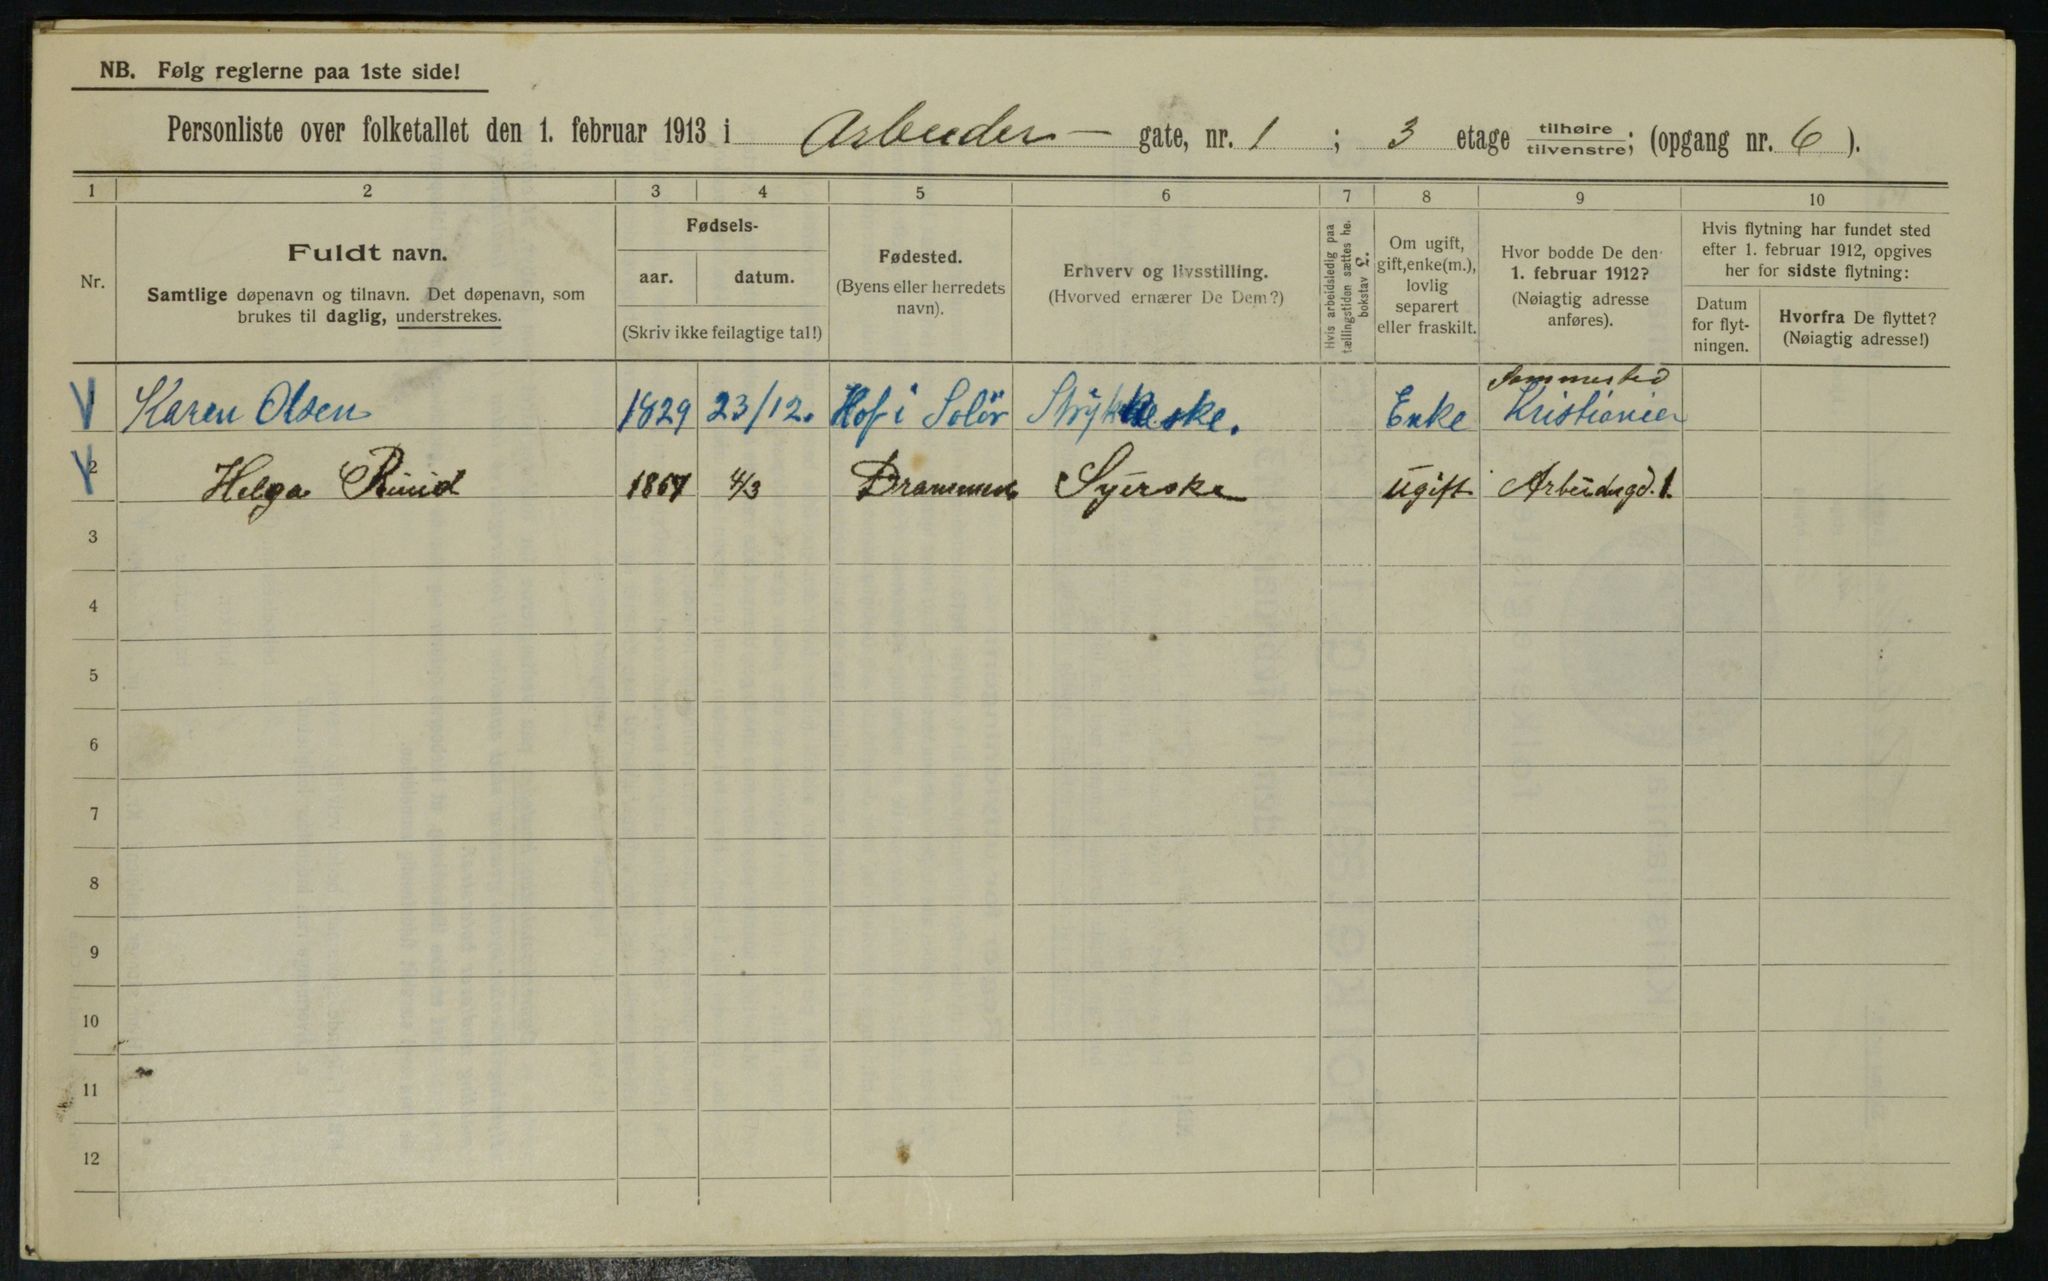 NB. Følg reglerne paa 1ste side!
Personliste over folketallet den 1. februar 1913 i Arbeider- gate, nr. 1 ; 3 etage tilhøire tilvenstre; (opgang nr. 6).
1 2 3 4 5 6 7 8 9 10
Nr.
Fuldt navn.
Samtlige døpenavn og tilnavn. Det døpenavn, som
brukes til daglig, understrekes.
Fødsels-
aar. datum.
(Skriv ikke feilagtige tal!)
Fødested.
(Byens eller herredets
navn).
Erhverv og livsstilling.
(Hvorved ernærer De Dem?)
Hvis arbeidsledig paa
tællingstiden sættes he.
bokstav L.
Om ugift,
gift, enke(m.),
lovlig
separert
eller fraskilt.
Hvor bodde De den
1. februar 1912?
(Nøiagtig adresse
anføres).
Hvis flytning har fundet sted
efter 1. februar 1912, opgives
her for sidste flytning:
Datum
for flyt-
ningen.
Hvorfra De flyttet?
(Nøiagtig adresse!)
Sammested
Karen Olsen 1829 23/12. Hof i Solör Enke Kristiania
2 Helga Ruud 4/3 Drammen Syerske ugift 1.
3
4
5
6
7
8
9
10
11
12